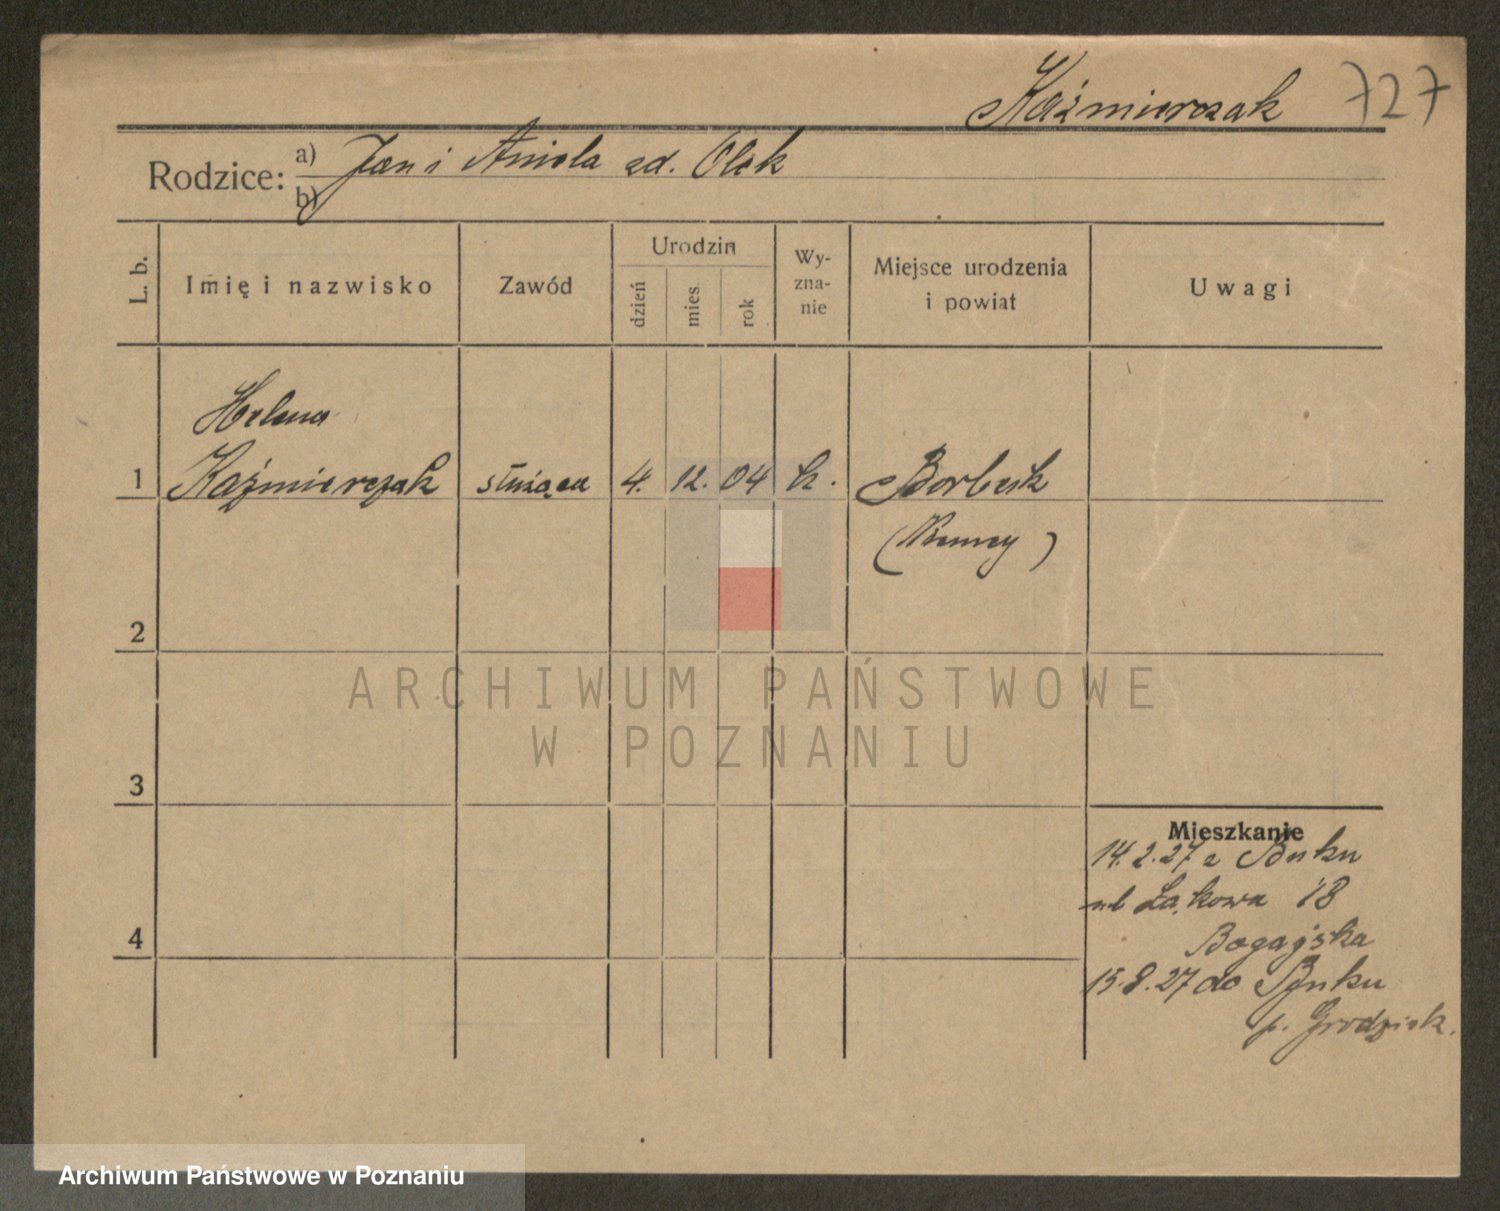 Kaźmierczak 727
Rodzice: a) Jan i Aniela zd. Olek
b)
L. b.
Imię i nazwisko
Zawód
Urodzin
dzień
mies.
rok
Wy-
zna-
nie
Miejsce urodzenia
i powiat
Uwagi
Helena
1 Kaźmierczak służąca 4. 12. 04 k. Borbeck
(Niemcy)
2
3
4
ARCHIWUM PAŃSTWOWE
W POZNANIU
Mieszkanie
14.2.27 z Buku
ul Łąkowa 18
15.8.27 do Buku
p. Grodzisk.
Archiwum Państwowe w Poznaniu